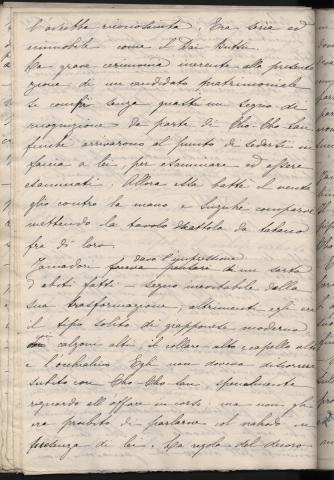 l'astratta riconosciuta. Era seria ed
immobile come il Dai Butsu.
La grave cerimonia inerente alla presenta
zione di un candidato matrimoniale
si compì senza quasi un segno di
ricognizione da parte di Cho-Cho-San
finchè arrivarono al punto di sedersi in
faccia a lei per esaminare ed essere
esaminati. Allora ella battè il venta
glio contro la mano e Suzuki comparve
mettendo la tavola scattola da tabacco
fra di loro.
Yamadori dava l'impressione di un sarto
d'abiti fatti – segno inevitabile della
sua trasformazione; altrimenti egli era
il tipo solito di giapponese moderno
calzoni alti, il collare alto e capello alto
e l'occhialino. Egli non doveva discorrere
subito con Cho Cho San specialmente
riguardo all'affare in corso, ma non gli
era proibito di parlarne col nakodo in
presenza di lei. La regola del decoro